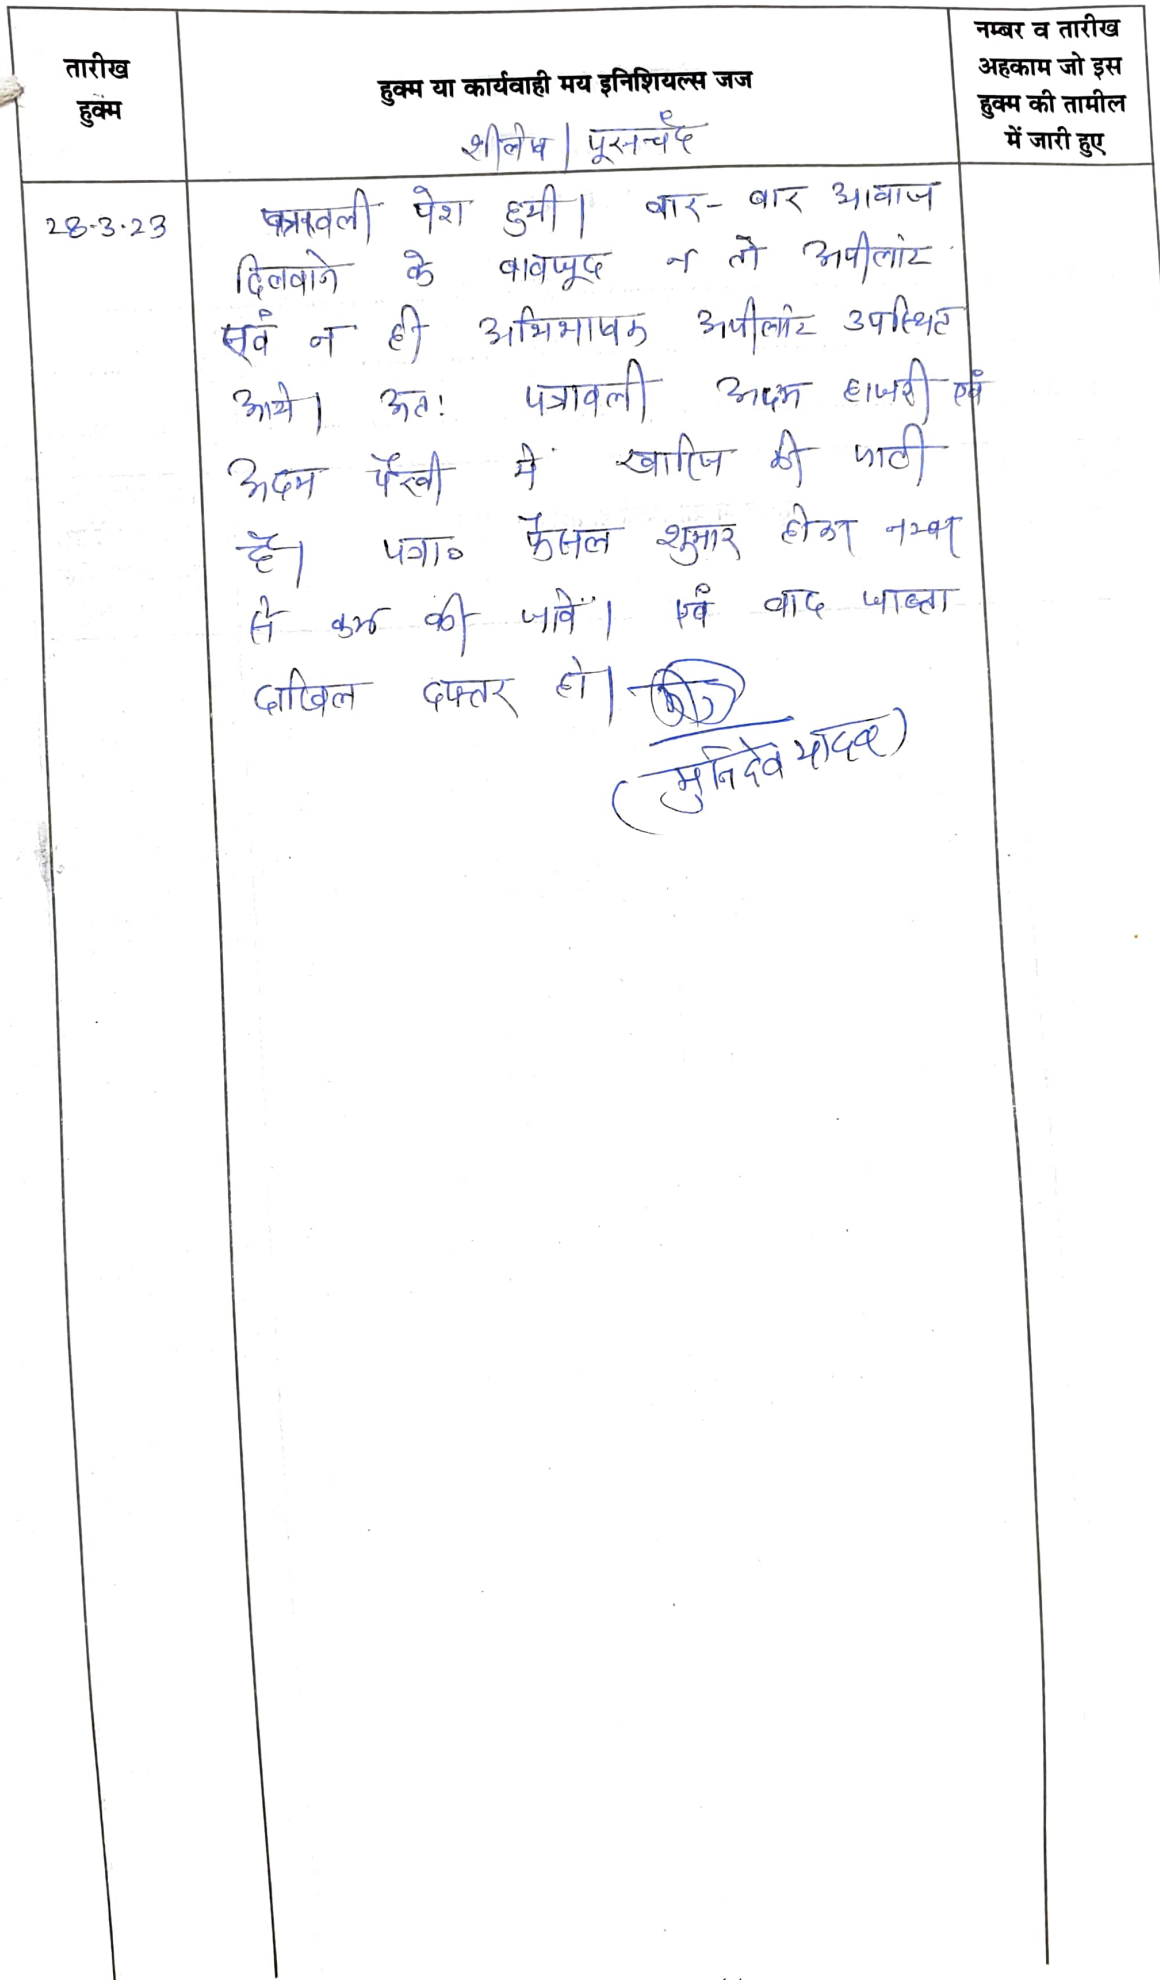 तारीख
हुक्म
हुक्म या कार्यवाही मय इनिशियल्स जज
नम्बर व तारीख
अहकाम जो इस
हुक्म की तामील
में जारी हुए
शीलेष | पूरनचंद
28-3-23
पत्रावली पेश हुयी। बार-बार आवाज
दिलवाने के बावजूद न तो अपीलांट
एवं न ही अभिभाषक अपीलांट उपस्थित
आये। अतः पत्रावली अदम हाजरी एवं
अदम पैरवी में खारिज की जाती
है। पत्रा० फैसल शुमार होकर नम्बर
से कम की जावें। एवं बाद जाब्ता
दाखिल दफ्तर हो।
(मुनिदेव यादव)